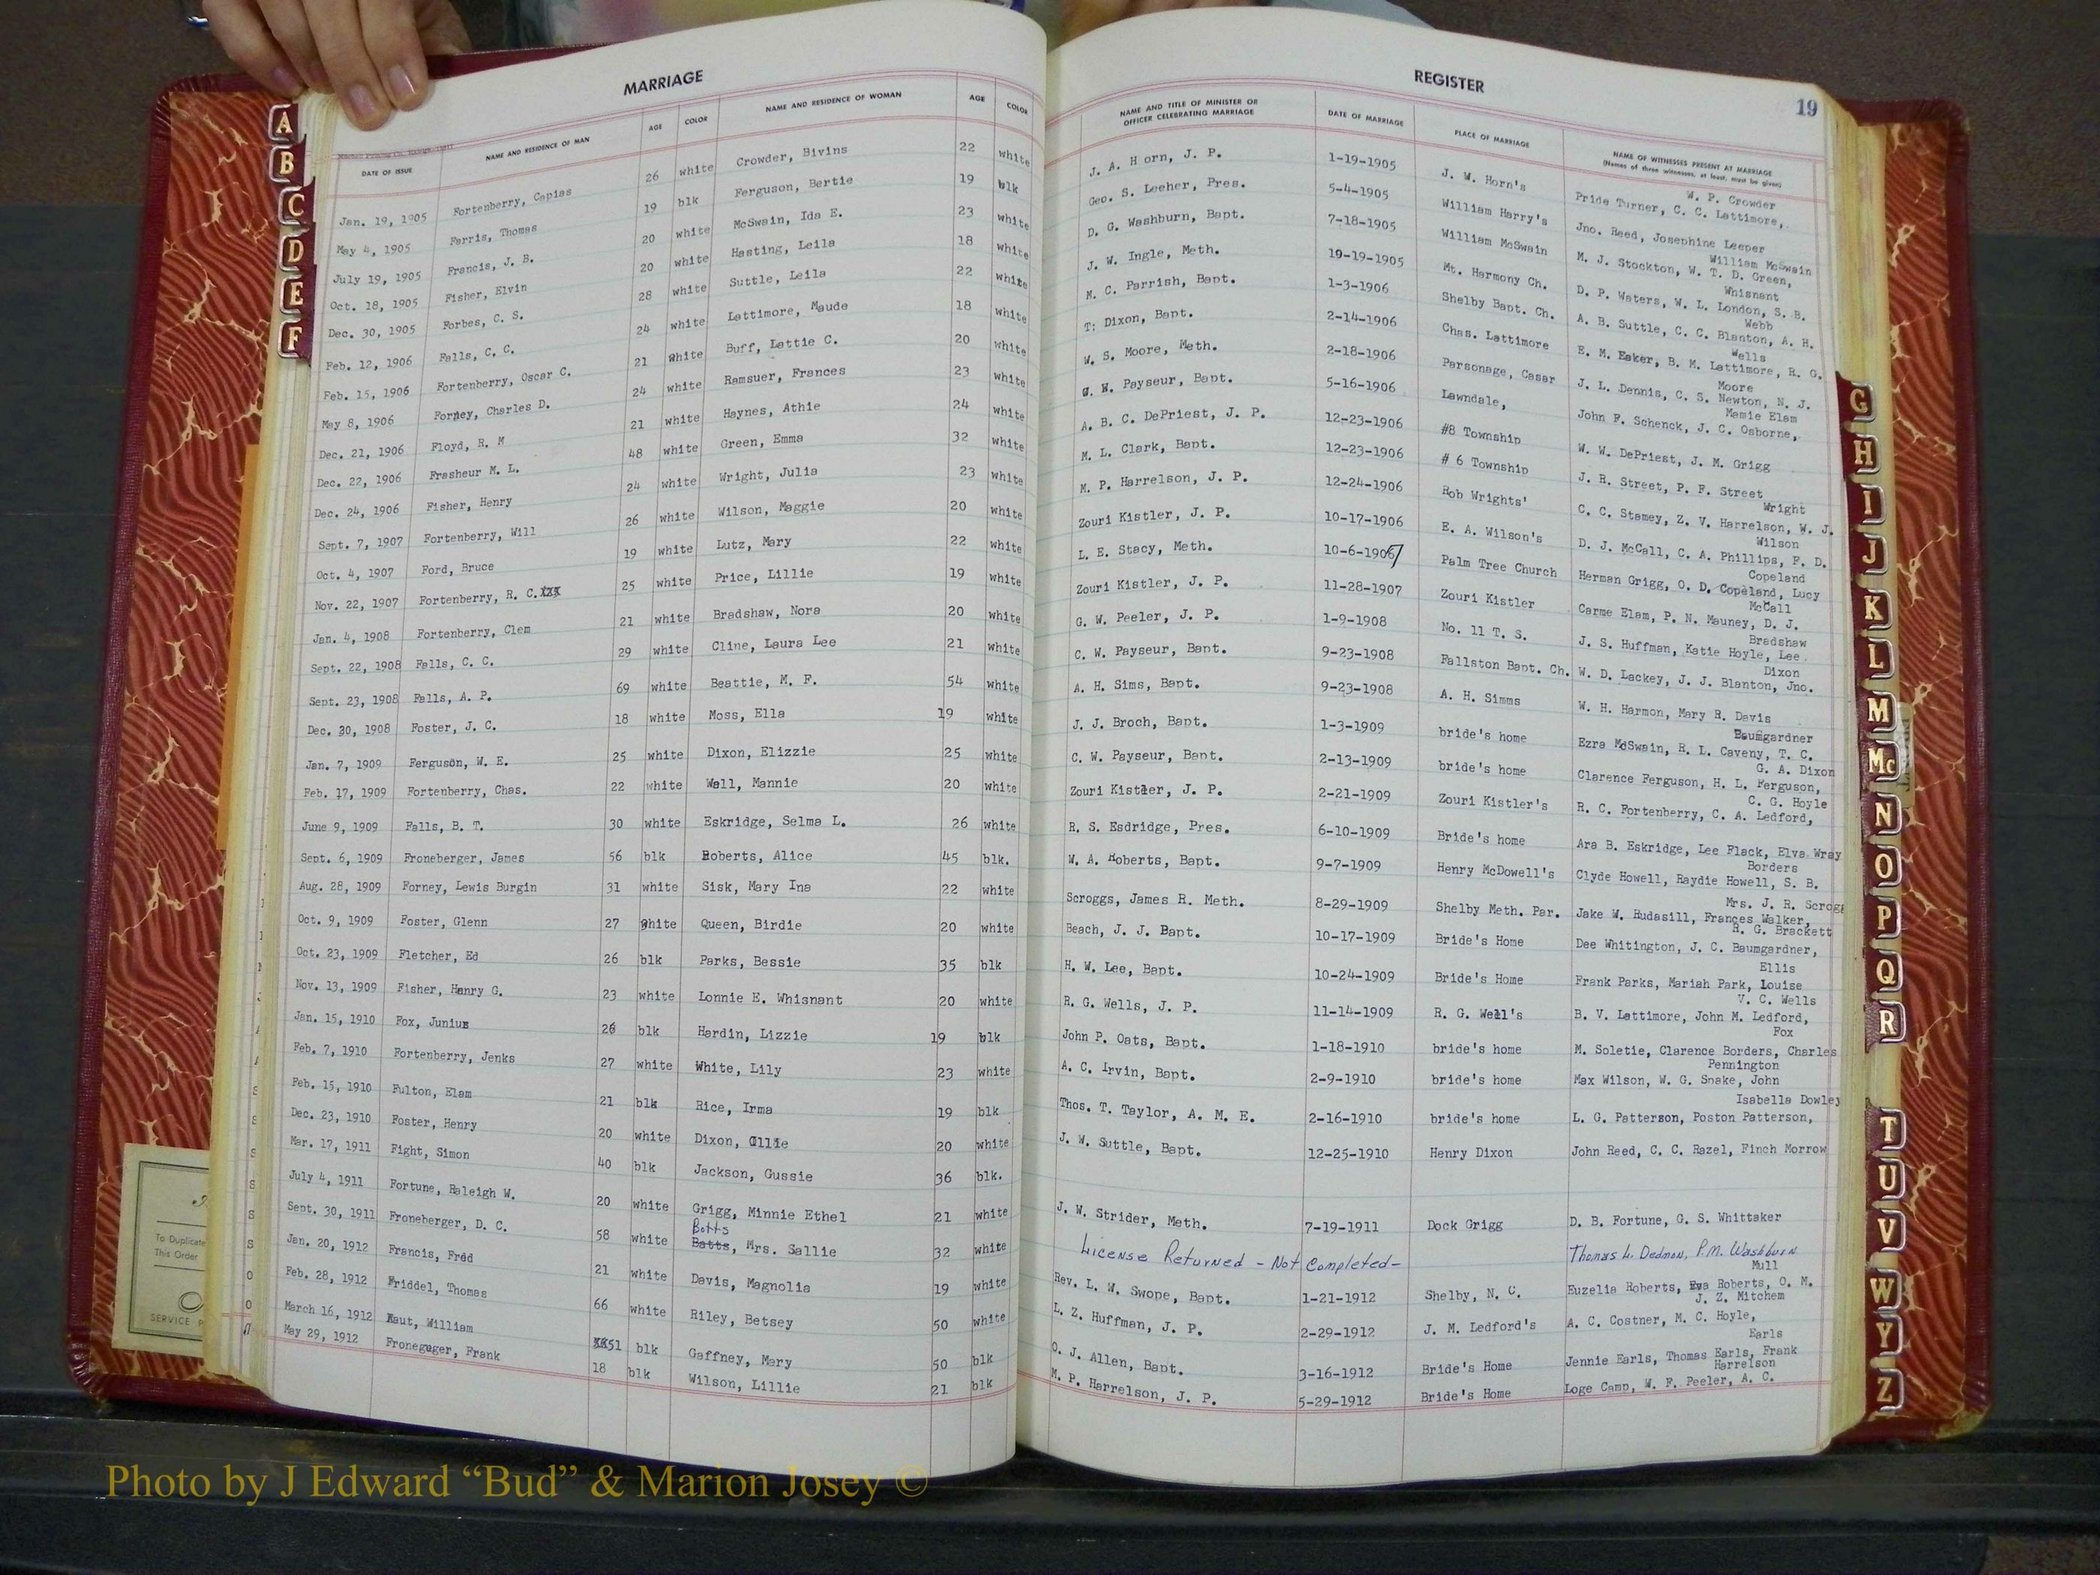 MARRIAGE
REGISTER
19
DATE OF ISSUE NAME AND RESIDENCE OF MAN AGE COLOR NAME AND RESIDENCE OF WOMAN AGE COLOR
NAME AND TITLE OF MINISTER OR OFFICER CELEBRATING MARRIAGE DATE OF MARRIAGE PLACE OF MARRIAGE NAME OF WITNESSES PRESENT AT MARRIAGE
(Names of three witnesses, at least, must be given)
W. P. Crowder
Jan. 19, 1905 Fortenberry, Capias 26 white Crowder, Bivins 22 white J. A. Horn, J. P. 1-19-1905 J. W. Horn's Pride Turner, C. C. Lattimore,
May 4, 1905 Farris, Thomas 19 blk Ferguson, Bertie 19 blk Geo. S. Leeher, Pres. 5-4-1905 William Harry's Jno. Reed, Josephine Leeper
William McSwain
July 19, 1905 Francis, J. B. 20 white McSwain, Ida E. 23 white D. G. Washburn, Bapt. 7-18-1905 William McSwain M. J. Stockton, W. T. D. Green,
Whisnant
Oct. 18, 1905 Fisher, Elvin 20 white Hasting, Leila 18 white J. W. Ingle, Meth. 10-19-1905 Mt. Harmony Ch. D. P. Waters, W. L. London, S. B.
Webb
Dec. 30, 1905 Forbes, C. S. 28 white Suttle, Leila 22 white M. C. Parrish, Bapt. 1-3-1906 Shelby Bapt. Ch. A. B. Suttle, C. C. Blanton, A. H.
Wells
Feb. 12, 1906 Falls, C. C. 24 white Lattimore, Maude 18 white T. Dixon, Bapt. 2-14-1906 Chas. Lattimore E. M. Eaker, B. M. Lattimore, R. G.
Moore
Feb. 15, 1906 Fortenberry, Oscar C. 21 white Buff, Lettie C. 20 white W. S. Moore, Meth. 2-18-1906 Parsonage, Casar J. L. Dennis, C. S. Newton, N. J.
Mamie Elam
May 8, 1906 Forney, Charles D. 24 white Ramsuer, Frances 23 white W. W. Payseur, Bapt. 5-16-1906 Lawndale, John F. Schenck, J. C. Osborne,
Dec. 21, 1906 Floyd, R. M 21 white Haynes, Athie 24 white A. B. C. DePriest, J. P. 12-23-1906 #8 Township W. W. DePriest, J. M. Grigg
Dec. 22, 1906 Frasheur M. L. 48 white Green, Emma 32 white M. L. Clark, Bapt. 12-23-1906 # 6 Township J. R. Street, P. F. Street
Wright
Dec. 24, 1906 Fisher, Henry 24 white Wright, Julia 23 white M. P. Harrelson, J. P. 12-24-1906 Rob Wrights' C. C. Stamey, Z. V. Harrelson, W. J.
Wilson
Sept. 7, 1907 Fortenberry, Will 26 white Wilson, Maggie 20 white Zouri Kistler, J. P. 10-17-1906 E. A. Wilson's D. J. McCall, C. A. Phillips, F. D.
Copeland
Oct. 4, 1907 Ford, Bruce 19 white Lutz, Mary 22 white L. E. Stacy, Meth. 10-6-1907 Palm Tree Church Herman Grigg, O. D. Copeland, Lucy
McCall
Nov. 22, 1907 Fortenberry, R. C. 25 white Price, Lillie 19 white Zouri Kistler, J. P. 11-28-1907 Zouri Kistler Carme Elam, P. N. Mauney, D. J.
Bradshaw
Jan. 4, 1908 Fortenberry, Clem 21 white Bradshaw, Nora 20 white G. W. Peeler, J. P. 1-9-1908 No. 11 T. S. J. S. Huffman, Katie Hoyle, Lee
Dixon
Sept. 22, 1908 Falls, C. C. 29 white Cline, Laura Lee 21 white C. W. Payseur, Bapt. 9-23-1908 Fallston Bapt. Ch. W. D. Lackey, J. J. Blanton, Jno.
Sept. 23, 1908 Falls, A. P. 69 white Beattie, M. F. 54 white A. H. Sims, Bapt. 9-23-1908 A. H. Simms W. H. Harmon, Mary R. Davis
Baumgardner
Dec. 30, 1908 Foster, J. C. 18 white Moss, Ella 19 white J. J. Broch, Bapt. 1-3-1909 bride's home Ezra McSwain, R. L. Caveny, T. C.
G. A. Dixon
Jan. 7, 1909 Ferguson, W. E. 25 white Dixon, Elizzie 25 white C. W. Payseur, Bapt. 2-13-1909 bride's home Clarence Ferguson, H. L. Ferguson,
C. G. Hoyle
Feb. 17, 1909 Fortenberry, Chas. 22 white Wall, Mannie 20 white Zouri Kistler, J. P. 2-21-1909 Zouri Kistler's R. C. Fortenberry, C. A. Ledford,
June 9, 1909 Falls, B. T. 30 white Eskridge, Selma L. 26 white R. S. Esdridge, Pres. 6-10-1909 Bride's home Ara B. Eskridge, Lee Flack, Elva Wray
Borders
Sept. 6, 1909 Froneberger, James 56 blk Roberts, Alice 45 blk. W. A. Roberts, Bapt. 9-7-1909 Henry McDowell's Clyde Howell, Raydie Howell, S. B.
Mrs. J. R. Scrogg
Aug. 28, 1909 Forney, Lewis Burgin 31 white Sisk, Mary Ina 22 white Scroggs, James R. Meth. 8-29-1909 Shelby Meth. Par. Jake W. Rudasill, Frances Walker,
R. G. Brackett
Oct. 9, 1909 Foster, Glenn 27 white Queen, Birdie 20 white Beach, J. J. Bapt. 10-17-1909 Bride's Home Dee Whitington, J. C. Baumgardner,
Ellis
Oct. 23, 1909 Fletcher, Ed 26 blk Parks, Bessie 35 blk H. W. Lee, Bapt. 10-24-1909 Bride's Home Frank Parks, Mariah Park, Louise
V. C. Wells
Nov. 13, 1909 Fisher, Henry G. 23 white Lonnie E. Whisnant 20 white R. G. Wells, J. P. 11-14-1909 R. G. Well's B. V. Lattimore, John M. Ledford,
Fox
Jan. 15, 1910 Fox, Junius 26 blk Hardin, Lizzie 19 blk John P. Oats, Bapt. 1-18-1910 bride's home M. Soletie, Clarence Borders, Charles
Pennington
Feb. 7, 1910 Fortenberry, Jenks 27 white White, Lily 23 white A. C. Irvin, Bapt. 2-9-1910 bride's home Max Wilson, W. G. Snake, John
Isabella Dowley
Feb. 15, 1910 Fulton, Elam 21 blk Rice, Irma 19 blk Thos. T. Taylor, A. M. E. 2-16-1910 bride's home L. G. Patterson, Poston Patterson,
Dec. 23, 1910 Foster, Henry 20 white Dixon, Ollie 20 white J. W. Suttle, Bapt. 12-25-1910 Henry Dixon John Reed, C. C. Razel, Finch Morrow
Mar. 17, 1911 Fight, Simon 40 blk Jackson, Gussie 36 blk.
July 4, 1911 Fortune, Raleigh W. 20 white Grigg, Minnie Ethel 21 white J. W. Strider, Meth. 7-19-1911 Dock Grigg D. B. Fortune, G. S. Whittaker
Botts
Sept. 30, 1911 Froneberger, D. C. 58 white Batts, Mrs. Sallie 32 white License Returned - Not Completed - Thomas L. Dedmon, P.M. Washburn
Mull
Jan. 20, 1912 Francis, Fred 21 white Davis, Magnolia 19 white Rev. L. W. Swope, Bapt. 1-21-1912 Shelby, N. C. Euzelia Roberts, Eva Roberts, O. M.
J. Z. Mitchem
Feb. 28, 1912 Friddel, Thomas 66 white Riley, Betsey 50 white L. Z. Huffman, J. P. 2-29-1912 J. M. Ledford's A. C. Costner, M. C. Hoyle,
Earls
March 16, 1912 Faut, William 51 blk Gaffney, Mary 50 blk O. J. Allen, Bapt. 3-16-1912 Bride's Home Jennie Earls, Thomas Earls, Frank
Harrelson
May 29, 1912 Froneguger, Frank 18 blk Wilson, Lillie 21 blk M. P. Harrelson, J. P. 5-29-1912 Bride's Home Loge Camp, W. F. Peeler, A. C.
A
B
C
D
E
F
G
H
I
J
K
L
M
Mc
N
O
P
Q
R
T
U
V
W
Y
Z
To Duplicate
This Order
SERVICE
Photo by J Edward “Bud” & Marion Josey ©